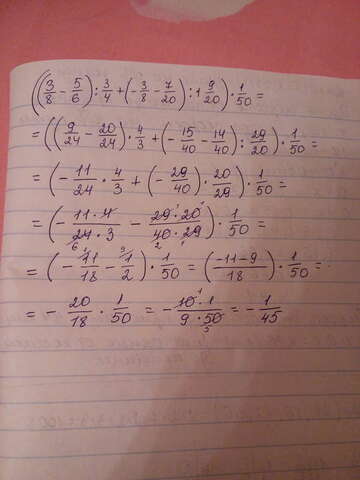 ((3/8 - 5/6) : 3/4 + (-3/8 - 7/20) : 1 9/20) · 1/50 =
= ((9/24 - 20/24) · 4/3 + (-15/40 - 14/40) : 29/20) · 1/50 =
= (-11/24 · 4/3 + (-29/40) · 20/29) · 1/50 =
= (-11·4/24·3 - 29·20/40·29) · 1/50 =
= (-11/18 - 1/2) · 1/50 = (-11-9/18) · 1/50 =
= - 20/18 · 1/50 = - 10·1/9·50 = - 1/45